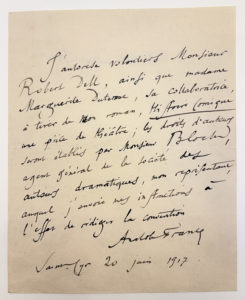 J'autorise volontiers Monsieur
Robert Dell, ainsi que madame
Marguerite, sa collaboratrice,
à tirer de mon roman, Histoire Comique
une pièce de théâtre; les droits d'auteurs
seront établis par Monsieur Bloch
agent général de la société des
auteurs dramatiques, mon représentant,
auquel j'envoie mes instructions à
l'effet de rédiger la convention
Anatole France
20 juin 1917